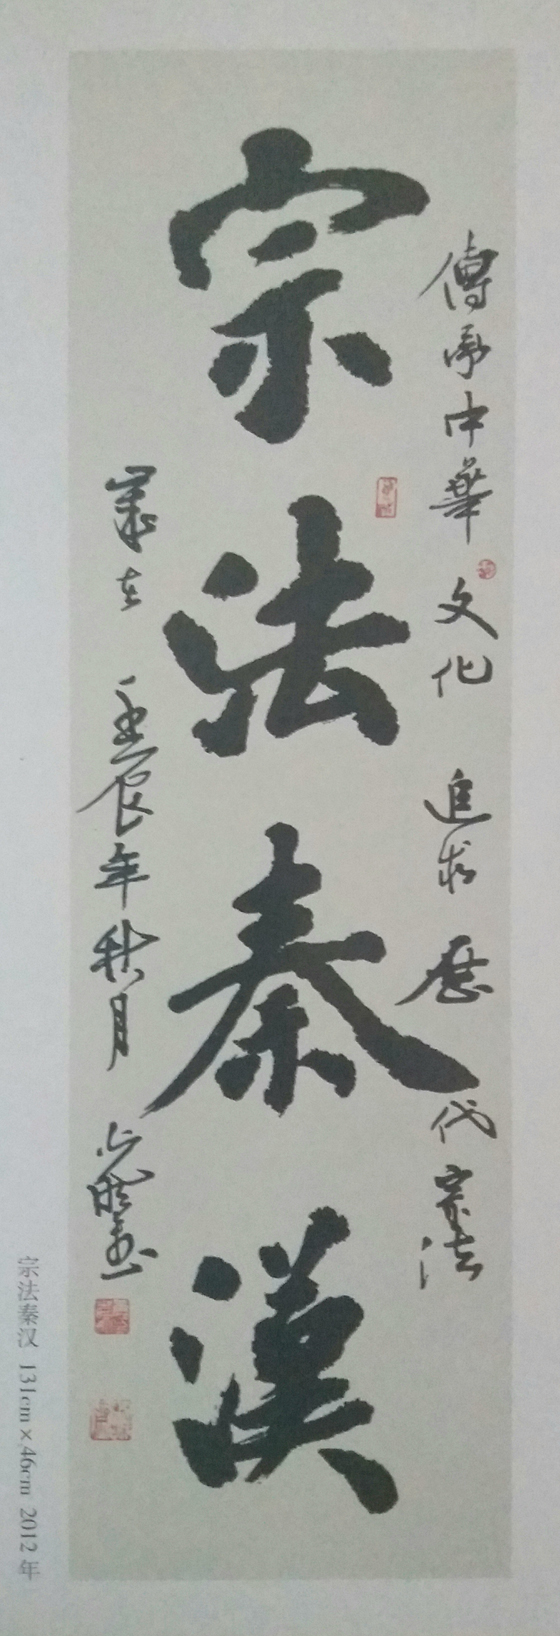 宗法秦漢
傳承中華文化追求歷代宗法
壬辰年秋月
宗法秦汉 131cm×46cm 2012年